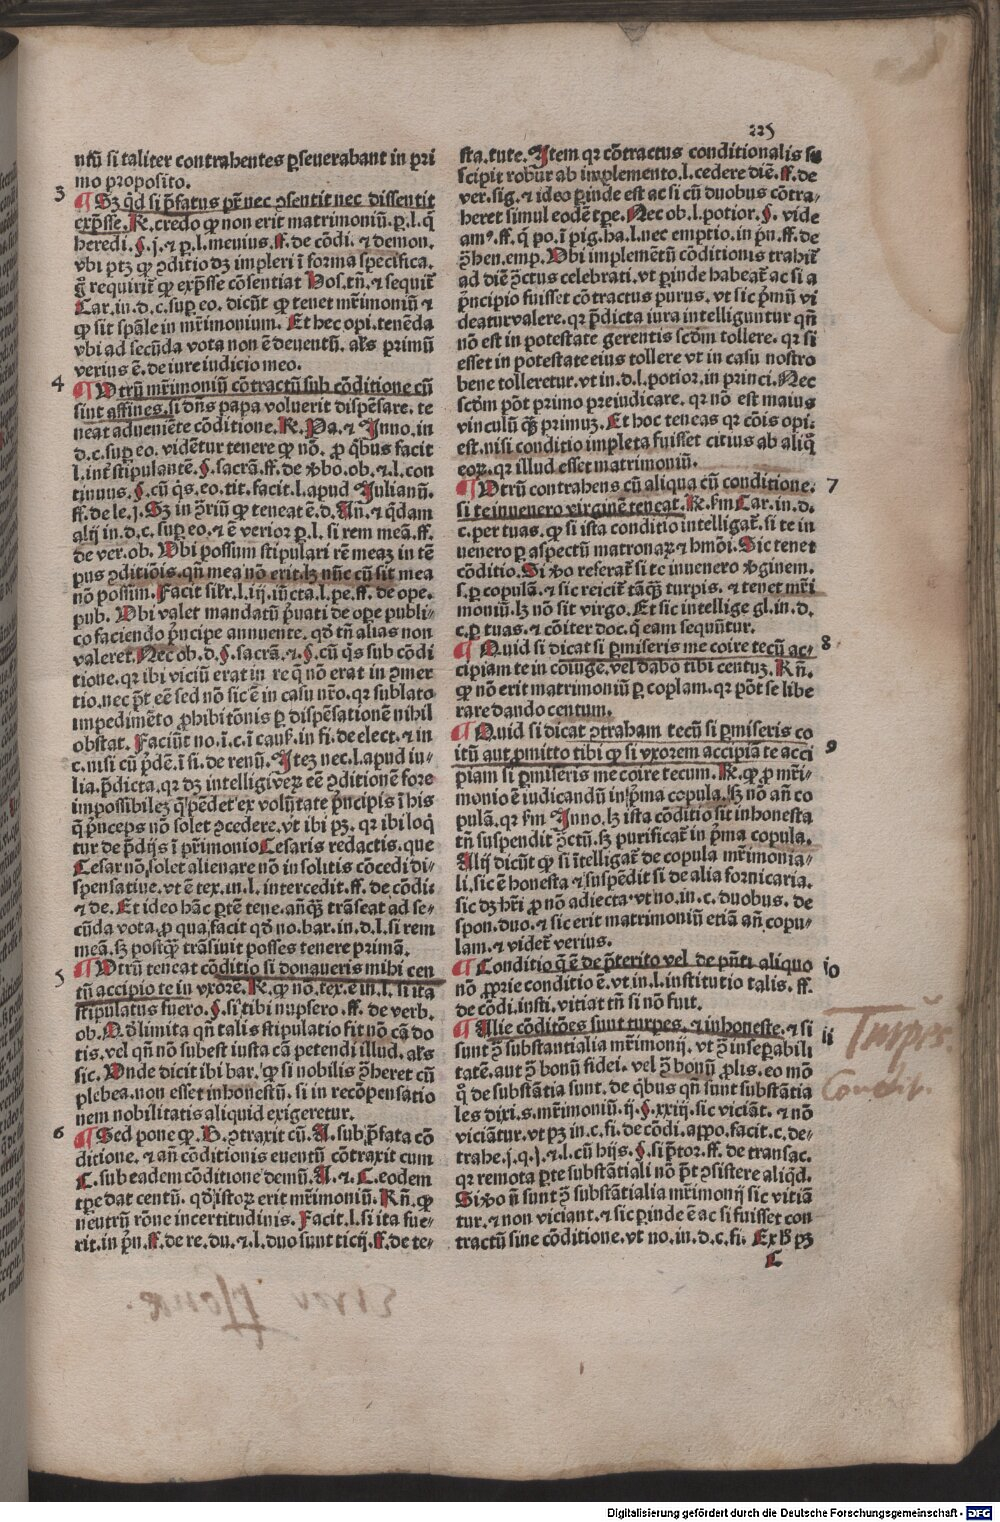 225
ntũ si taliter contrahentes ꝑseverabant in pri
mo proposito.
3
¶ Sꝫ qͥd si p̃fatus pr̃ nec ꝯsentit nec dissentit
exp̃sse. R̃. credo ꝙ non erit matrimoniũ. ꝑ. l. q̃
heredi. §. j. ⁊ ꝑ. l. mevius. ff. de cõdi. ⁊ demon.
vbi ptꝫ ꝙ ꝯditio dꝫ impleri ĩ forma specifica.
g̃ requirit̃ ꝙ exp̃sse cõsentiat Hos. tñ. ⁊ sequit̃
Car. in. d. c. suꝑ eo. dicũt ꝙ tenet mr̃imoniũ ⁊
ꝙ sit spãle in mr̃imonium. Et hec opi. tenẽda
vbi ad secũda vota non ẽ deventũ. al̃s primũ
verius ẽ. de iure iudicio meo.
4
¶ Vtrũ mr̃imoniũ cõtractũ sub cõditione cũ
sint affines. si dñs papa voluerit dispẽsare. te
neat adveniẽte cõditione. R̃. Pa. ⁊ Inno. in
d. c. suꝑ eo. vidẽtur tenere ꝙ nõ. ꝓ qͥbus facit
l. int̃ stipulantẽ. §. sacrã. ff. de ꝟbo. ob. ⁊ l. con
tinuus. §. cũ qͥs. eo. tit. facit. l. apud Julianũ.
ff. de le. j. Sꝫ in ꝯriũ ꝙ teneat ẽ. d. An̄. ⁊ qͥdam
alij in. d. c. suꝑ eo. ⁊ ẽ verior ꝑ. l. si rem meã. ff.
de ver. ob. Vbi possum stipulari rẽ meaꝫ in tẽ
pus ꝯditiõis. qñ mea nõ erit. lꝫ nũc cũ sit mea
nõ possim. Facit sil̃r. l. ij. iũcta. l. pe. ff. de ope.
pub. Vbi valet mandatũ p̃vati de oꝑe publi-
co faciendo p̃ncipe annuente. qđ tñ alias non
valeret. Nec ob. d. §. sacrã. ⁊. §. cũ qͥs sub cõdi
tione. qr ibi viciũ erat in re q̃ nõ erat in ꝯmer
tio. nec p̃t eẽ sed nõ sic ẽ in casu nr̃o. qr sublato
impedimẽto ꝓhibitõnis ꝑ dispẽsationẽ nihil
obstat. Faciũt no. ĩ. c. ĩ cauſ. in fi. de elect. ⁊ in
c. nisi cũ p̃dẽ. ĩ. si. de renũ. Iteꝫ nec. l. apud iu-
lia. p̃dicta. qr dꝫ intelligi vbi eẽ ꝯditionẽ fore
impossibileꝫ q̃ pẽdet ex volũtate p̃ncipis ĩ his
q̃ p̃nceps nõ solet ꝯcedere. vt ibi pꝫ. qr ibi loq̃
tur de p̃dijs ĩ pr̃imonio Cesaris redactis. que
Cesar nõ solet alienare nõ in solitis cõcedi di-
spensative. vt ẽ tex. in. l. intercedit. ff. de cõdi.
⁊ de. Et ideo hãc ꝑtẽ tene. añq̃ꝫ trãseat ad se-
cũda vota. ꝓ qua facit qđ no. bar. in. d. l. si rem
meã. sꝫ postq̃ꝫ trãsiuit posses tenere primã.
5
¶ Vtrũ teneat cõditio si donaveris mihi cen
tũ accipio te in vxorẽ. R̃. ꝙ nõ. tex. ẽ in. l. si ita
stipulatus fuero. §. si tibi nupsero. ff. de verb.
ob. Qđ limita qñ talis stipulatio fit nõ cã do
tis. vel qñ nõ subest iusta cã petendi illud. al̃s
sic. Vnde dicit ibi bar. ꝙ si nobilis ꝯheret cũ
plebea. non esset inhonestũ. si in recõpensatio
nem nobilitatis aliquid exigeretur.
6
¶ Sed pone ꝙ. B. ꝯtraxit cũ. A. sub p̃fata cõ
ditione. ⁊ añ cõditionis eventũ cõtraxit cum
C. sub eadem cõditione demũ. A. ⁊. C. eodem
tp̃e dat centũ. qđ istoꝝ erit mr̃imoniũ. Rñ. ꝙ
neutrũ rõne incertitudinis. Facit. l. si ita fue-
rit. in p̃n. ff. de re. du. ⁊ l. duo sunt ticij. ff. de te-
sta. tute. Item qr cõtractus conditionalis su
scipit robur ab implemento. l. cedere diẽ. ff. de
ver. sig. ⁊ ideo ꝑinde est ac si cũ duobus cõtra-
heret simul eodẽ tp̃e. Nec ob. l. potior. §. vide
amꝰ. ff. q̃ po. ĩ pig. ha. l. nec emptio. in p̃n. ff. de
ꝯhen. emp. Vbi implemẽtũ cõditionis trahit̃
ad diẽ ꝯctus celebrati. vt ꝑinde habeat̃ ac si a
p̃ncipio fuisset cõtractus purus. vt sic p̃mũ vi
deatur valere. qr p̃dicta iura intelliguntur qñ
nõ est in potestate gerentis scđm tollere. qr si
esset in potestate eius tollere vt in casu nostro
bene tolleretur. vt in. d. l. potior. in princi. Nec
scđm põt primo preiudicare. qr nõ est maius
vinculũ q̃ꝫ primuꝫ. Et hoc teneas qr cõis opi.
est. nisi conditio impleta fuisset citius ab aliq̃
eoꝝ. qr illud esset matrimoniũ.
7
¶ Vtrũ contrahens cũ aliqua cũ conditione.
si te invenero virginẽ teneat. R̃. ẜm Car. in. d.
c. per tuas. ꝙ si ista conditio intelligat̃. si te in
venero ꝑ aspectũ matronaꝝ ⁊ hmõi. Sic tenet
cõditio. Si ꝟo referat̃ si te invenero ꝟginem.
s. ꝑ copulã. ⁊ sic reicit̃ tãq̃ꝫ turpis. ⁊ tenet mr̃i
moniũ. lꝫ nõ sit virgo. Et sic intellige gl. in. d.
c. ꝑ tuas. ⁊ cõiter doc. q̃ eam sequũtur.
8
¶ Quid si dicat si ꝑmiseris me coire tecũ ac-
cipiam te in coniugẽ. vel dabo tibi centuꝫ. Rñ.
ꝙ nõ erit matrimoniũ ꝑ coplam. qr põt se libe
rare dando centum.
9
¶ Quid si dicat ꝯtraham tecũ si ꝑmiseris co
itũ aut ꝓmitto tibi ꝙ si vxorem accipiã te acci
piam si ꝑmiseris me coire tecum. R̃. ꝙ ꝓ mr̃i-
monio ẽ iudicandũ in p̃ma copula. sꝫ nõ añ co
pulã. qr ẜm Inno. lꝫ ista cõditio sit inhonesta
tñ suspendit ꝯctũ. sꝫ purificat̃ in p̃ma copula.
Alij dicũt ꝙ si ĩtelligat̃ de copula mr̃imonia-
li. sic ẽ honesta ⁊ suspẽdit si de alia fornicaria.
sic dꝫ hr̃i ꝓ nõ adiecta. vt no. in. c. duobus. de
spon. duo. ⁊ sic erit matrimoniũ etiã añ copu-
lam. ⁊ videt̃ verius.
io
¶ Conditio q̃ ẽ de p̃terito vel de pñti aliquo
nõ ꝓprie conditio ẽ. vt in. l. institutio talis. ff.
de cõdi. insti. vitiat tñ si nõ fuit.
ii
¶ Alie cõditões sunt turpes. ⁊ inhoneste. ⁊ si
sunt ꝯ̃ substantialia mr̃imonij. vt ꝯ̃ inseꝑabili
tatẽ. aut ꝯ̃ bonũ fidei. vel ꝯ̃ bonũ ꝓlis. eo mõ
q̃ de substãtia sunt. de qͥbus qñ sunt substãtia
les dixi. s. mr̃imoniũ. ij. §. xxiij. sic viciãt. ⁊ nõ
viciãtur. vt pꝫ in. c. fi. de cõdi. appo. facit. c. de-
trahe. j. q. j. ⁊. l. cũ hijs. §. si p̃tor. ff. de transac.
qr remota ꝑte substãtiali nõ p̃t ꝯsistere aliqđ.
Si ꝟo ñ sunt ꝯ̃ substãtialia mr̃imonij sic vitiã
tur. ⁊ non viciant. ⁊ sic ꝑinde ẽ ac si fuisset con
tractũ sine cõditione. vt no. in. d. c. fi. Ex ħ pꝫ
C
Turpes.
Condit.
Digitalisierung gefördert durch die Deutsche Forschungsgemeinschaft - DFG